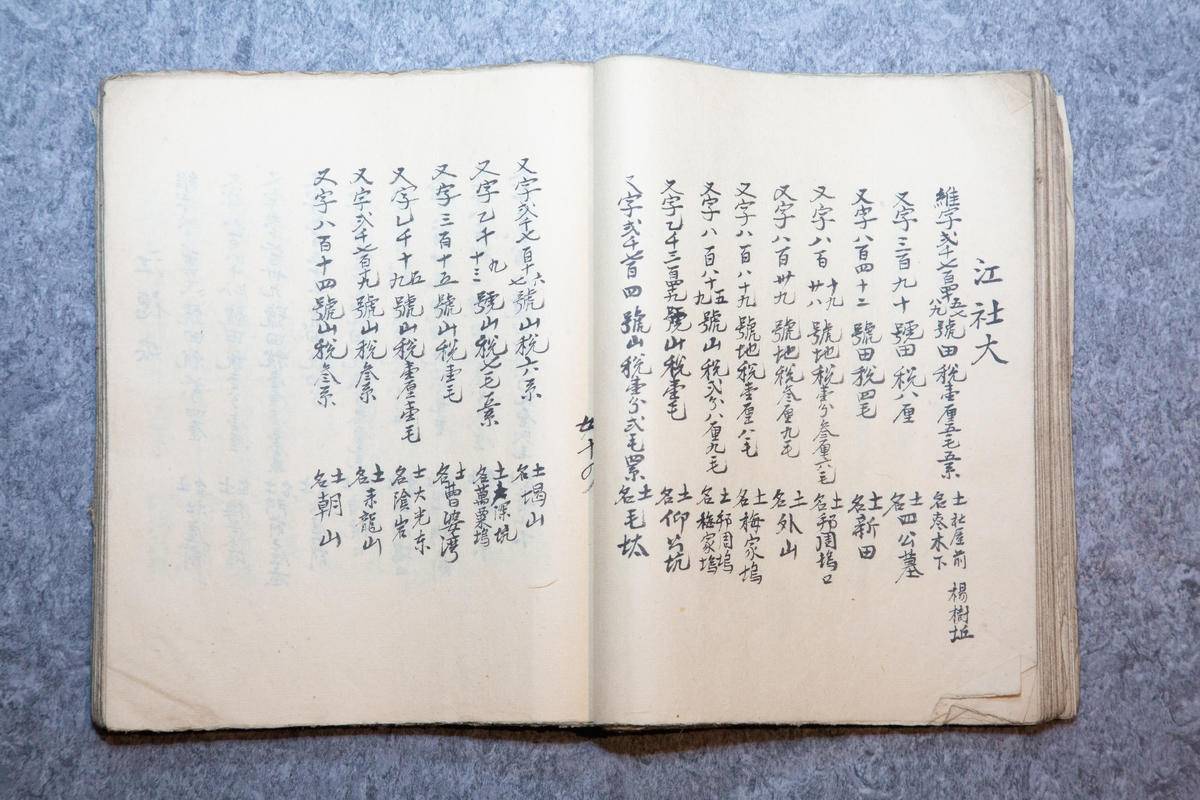 江社大
維字弍千七百四十五七八九號田稅壹厘五毛五系 土名 社屋前 枣木下 楊樹坵
又字三百九十號田稅八厘 土名四公墓
又字八百四十二號田稅四毛 土名新田
又字八百十九廿八號地稅壹分叁厘六毛 土名 塢口
又字八百卅九號地稅叁厘九毛 土名外山
又字八百八十九號地稅壹厘八毛 土名梅家塢
又字八百八十五九號山稅弍分八厘九毛 土名 塢 梅家塢
又字乙千三百 九號山稅壹毛 土名仰 坑
又字弍千七百四號山稅壹分弍毛 系 土名毛
又字弍千七百十六七號山稅六系 土名堨山
又字乙千九十三號山稅七毛 系 土名 坑 萬粟塢
又字三百十五號山稅壹毛 土名曹婆湾
又字乙千十五九號山稅壹厘壹毛 土名 大光东 陰岩
又字弍千七百九號山稅叁系 土名来龍山
又字八百十四號山稅叁系 土名朝山